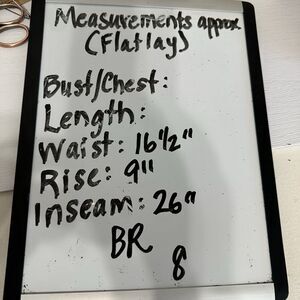 Measurements approx
(Flatlay)
Bust/Chest:
Length:
Waist: 16 1/2"
Rise: 9"
Inseam: 26"
BR
8